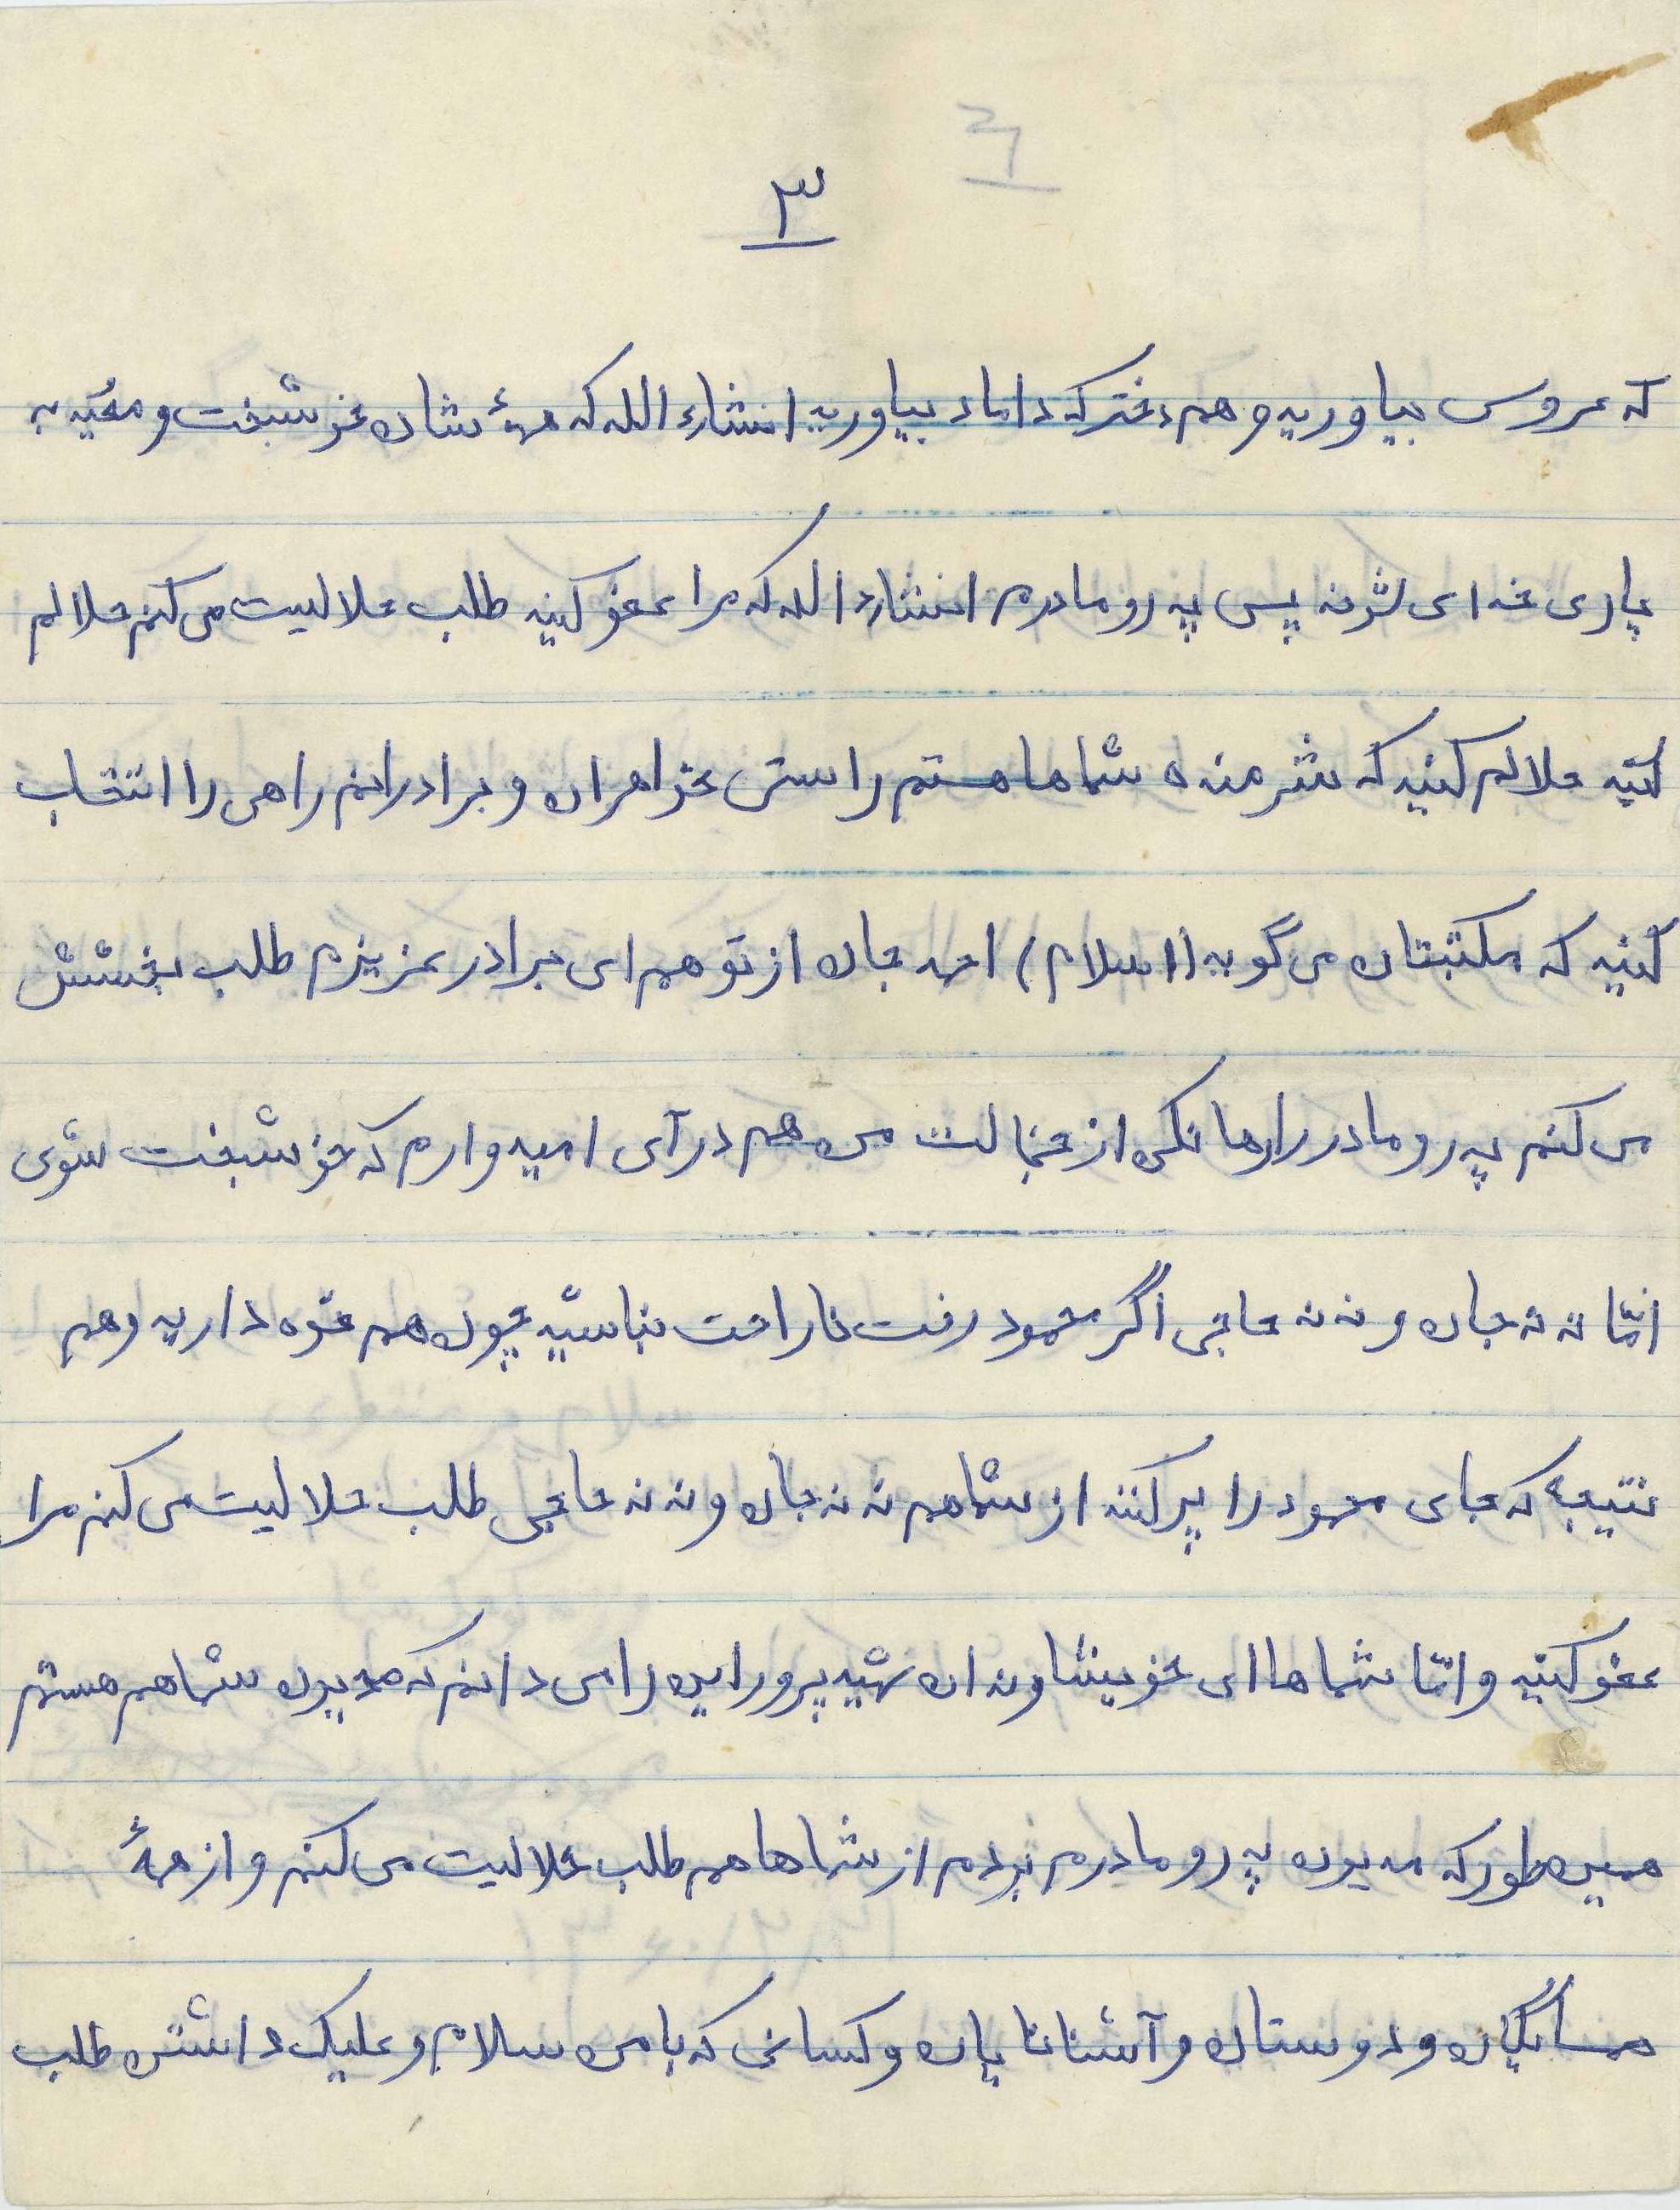 ۳
که عروس بیاورید و هم دختر که داماد بیاورید انشاء الله که همهٔ شان خوشبخت و مقید به
یاری خدای شوند پس پدر و مادرم انشاء الله که مرا عفو کنید طلب حلالیت می کنم حلالم
کنید حلالم کنید که شرمنده شماها هستم راستی خواهران و برادرانم راهی را انتخاب
کنید که مکتبتان می گوید (اسلام) احمد جان از تو هم ای برادر عزیزم طلب بخشش
می کنم پدر و مادر را رها نکی از خجالت من هم درآی امیدوارم که خوشبخت شوی
امّا ننه جان و ننه حاجی اگر محمود رفت ناراحت نباشید چون هم نوه دارید و هم
نتیجه که جای محمود را پر کنند از شما هم ننه جان و ننه حاجی طلب حلالیت می کنم مرا
عفو کنید و امّا شماها ای خویشاوندان شهید پرور این را می دانم که مدیون شما هم هستم
همین طور که مدیون پدر و مادرم بودم از شماها هم طلب حلالیت می کنم و از همهٔ
همسایگان و دوستان و آشنانایان و کسانی که با من سلام و علیک داشتن طلب